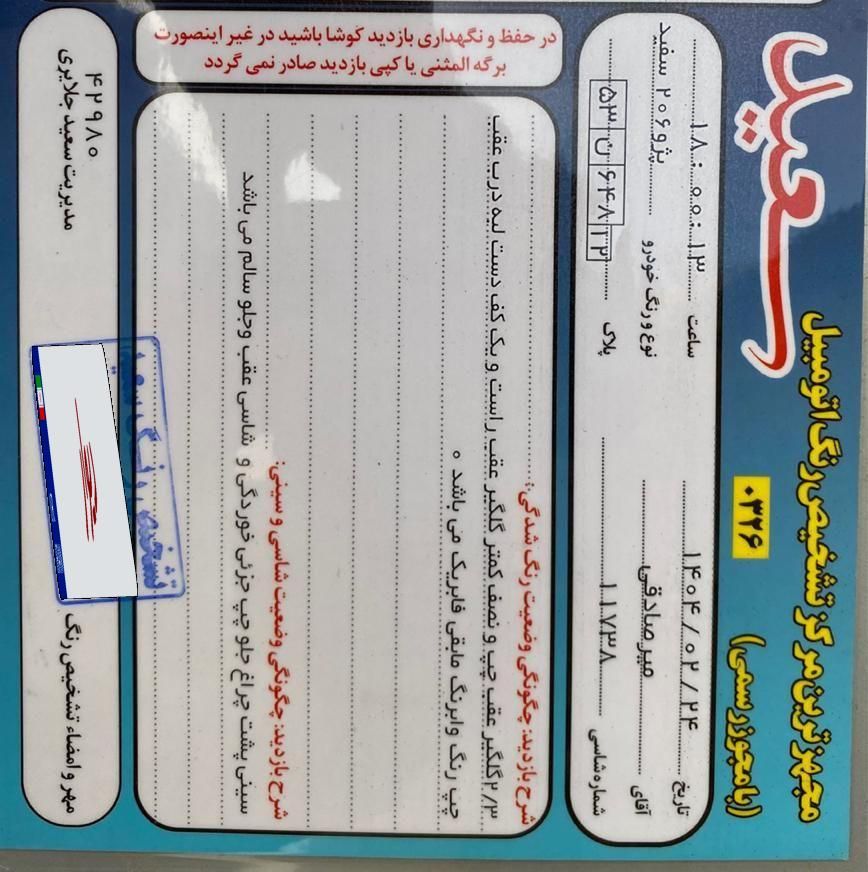 مجهزترین مرکز تشخیص رنگ اتومبیل
سعید
(با مجوز رسمی)
۰۳۲۶
تاریخ ۱۴۰۴/۰۲/۲۴ ساعت ۱۸:۰۰:۱۳
آقای میرصادقی نوع و رنگ خودرو پژو ۲۰۶ سفید
شماره شاسی ۱۱۷۳۸ پلاک ۵۳ ن ۶۴۸ ۲۳
شرح بازدید: چگونگی وضعیت رنگ شدگی:
۲/۳ گلگیر عقب چپ و نصف کمتر گلگیر عقب راست و یک کف دست لبه درب عقب
چپ رنگ وابرنگ مابقی فابریک می باشد ۰
شرح بازدید: چگونگی وضعیت شاسی و سینی:
سینی پشت چراغ جلو چپ جزئی خوردگی و شاسی عقب وجلو سالم می باشد
مهر و امضاء تشخیص رنگ
مدیریت سعید جلایری
۴۲۹۸۰
در حفظ و نگهداری بازدید کوشا باشید در غیر اینصورت
برگه المثنی یا کپی بازدید صادر نمی گردد